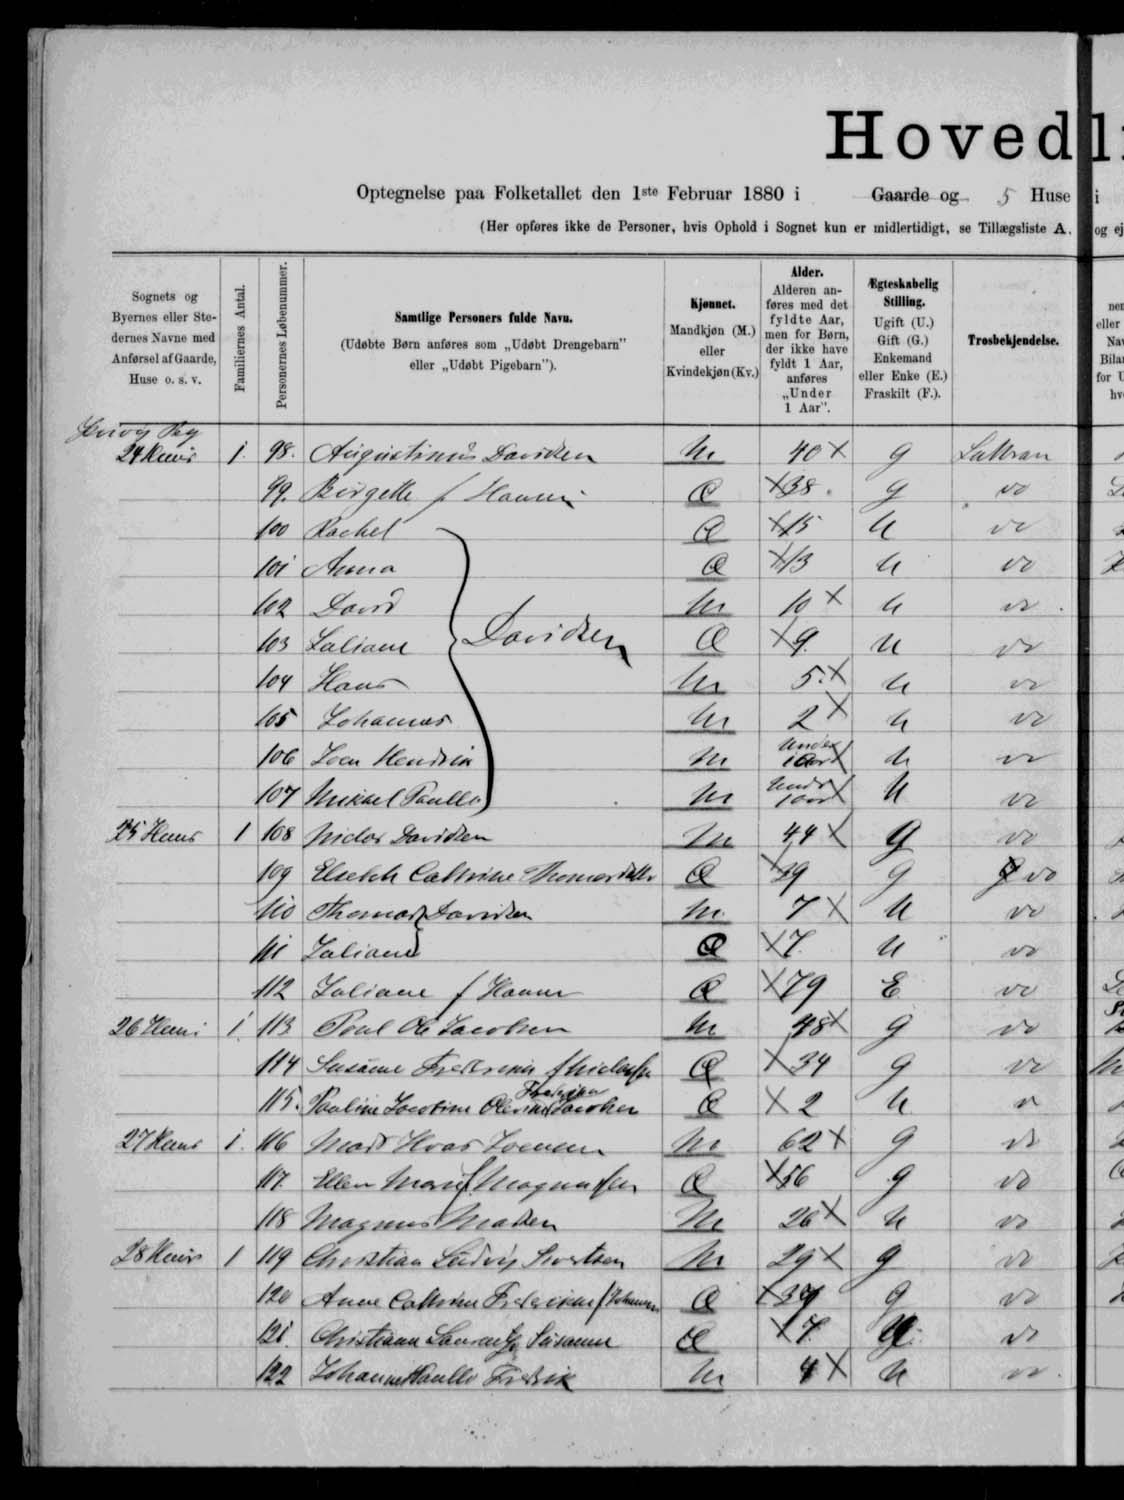 Hovedli
Optegnelse paa Folketallet den 1ste Februar 1880 i Gaarde og 5 Huse i
(Her opføres ikke de Personer, hvis Ophold i Sognet kun er midlertidigt, se Tillægsliste A. og ej
Sognets og Byernes eller Stedernes Navne med Anførsel af Gaarde, Huse o. s. v.
Familiernes Antal.
Personernes Løbenummer.
Samtlige Personers fulde Navn.
(Udøbte Børn anføres som „Udøbt Drengebarn" eller „Udøbt Pigebarn").
Kjønnet.
Mandkjøn (M.) eller Kvindekjøn (Kv.)
Alder.
Alderen anføres med det fyldte Aar, men for Børn, der ikke have fyldt 1 Aar, anføres „Under 1 Aar".
Ægteskabelig Stilling.
Ugift (U.) Gift (G.) Enkemand eller Enke (E.) Fraskilt (F.).
Trosbekjendelse.
24 Huus 1. 98. Augustinus Davidsen M 40 x G Luthran
99. Birgette f Hansen Q x 38 G do
100 Rachel Q x 15 U do
101 Anna Q x 13 U do
102 David M 10 x U do
103 Juliane Davidsen Q x 9. U do
104 Hans M 5. x U do
105 Johannes M 2 x U do
106 Joen Hendrik M Under 1 Aar x U do
107 Mikael Poulli M Under 1 Aar x U do
25 Huus 1 108 Niclas Davidsen M 44 x G do
109 Elsebeth Cathrine Thomasdatter Q x 39 G do
110 Thomas Davidsen M. 7 x U do
111 Juliane Q x 7. U do
112 Juliane f Hansen Q x 79 E do
26 Huus 1. 113. Poul Ole Jacobsen M 48 x G do
114 Susanne Frederikke f Q x 34 G do
115. Pauline Jacobine Jacobsen Q x 2 U do
27 Huus 1. 116 Mads Joensen M 62 x G do
117. Ellen Marie f Magnussen Q x 56 G do
118 Magnus Madsen M 26 x U do
28 Huus 1 119 Christian Ludvig Sivertsen M 29 x G do
120 Anne Cathrine Frederikke f Johansen Q x G do
121. Christianne Susanne Q x 7. U do
122 Johannes Poulli Fredrik M 4 x U do